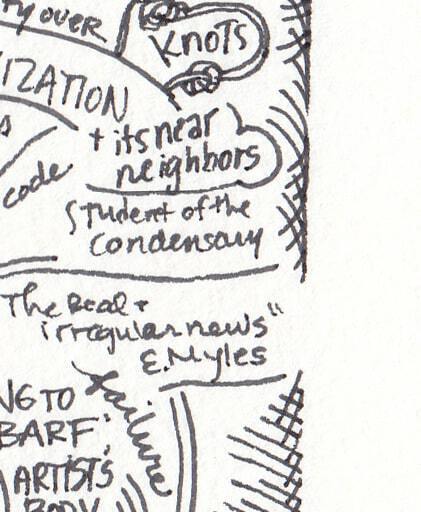 TY OVER
KNOTS
IZATION
+ its near
neighbors
code
Student of the
Condensary
The Real +
irregular news"
E. Myles
NG TO
BARF;
failure
ARTISTS
BODY